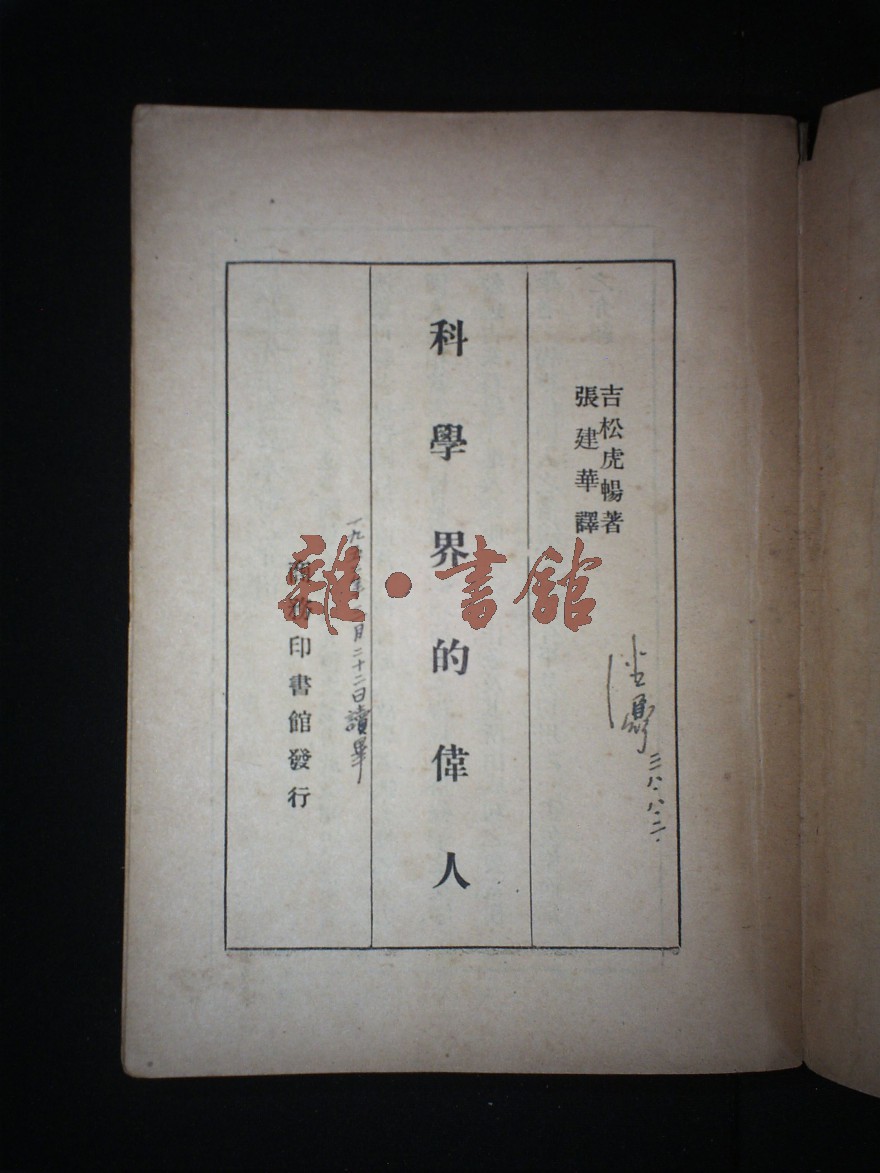 吉松虎暢著
張建華譯
三八·八·二·
科學界的偉人
月二十二日讀畢
商務印書館發行
雜·書館